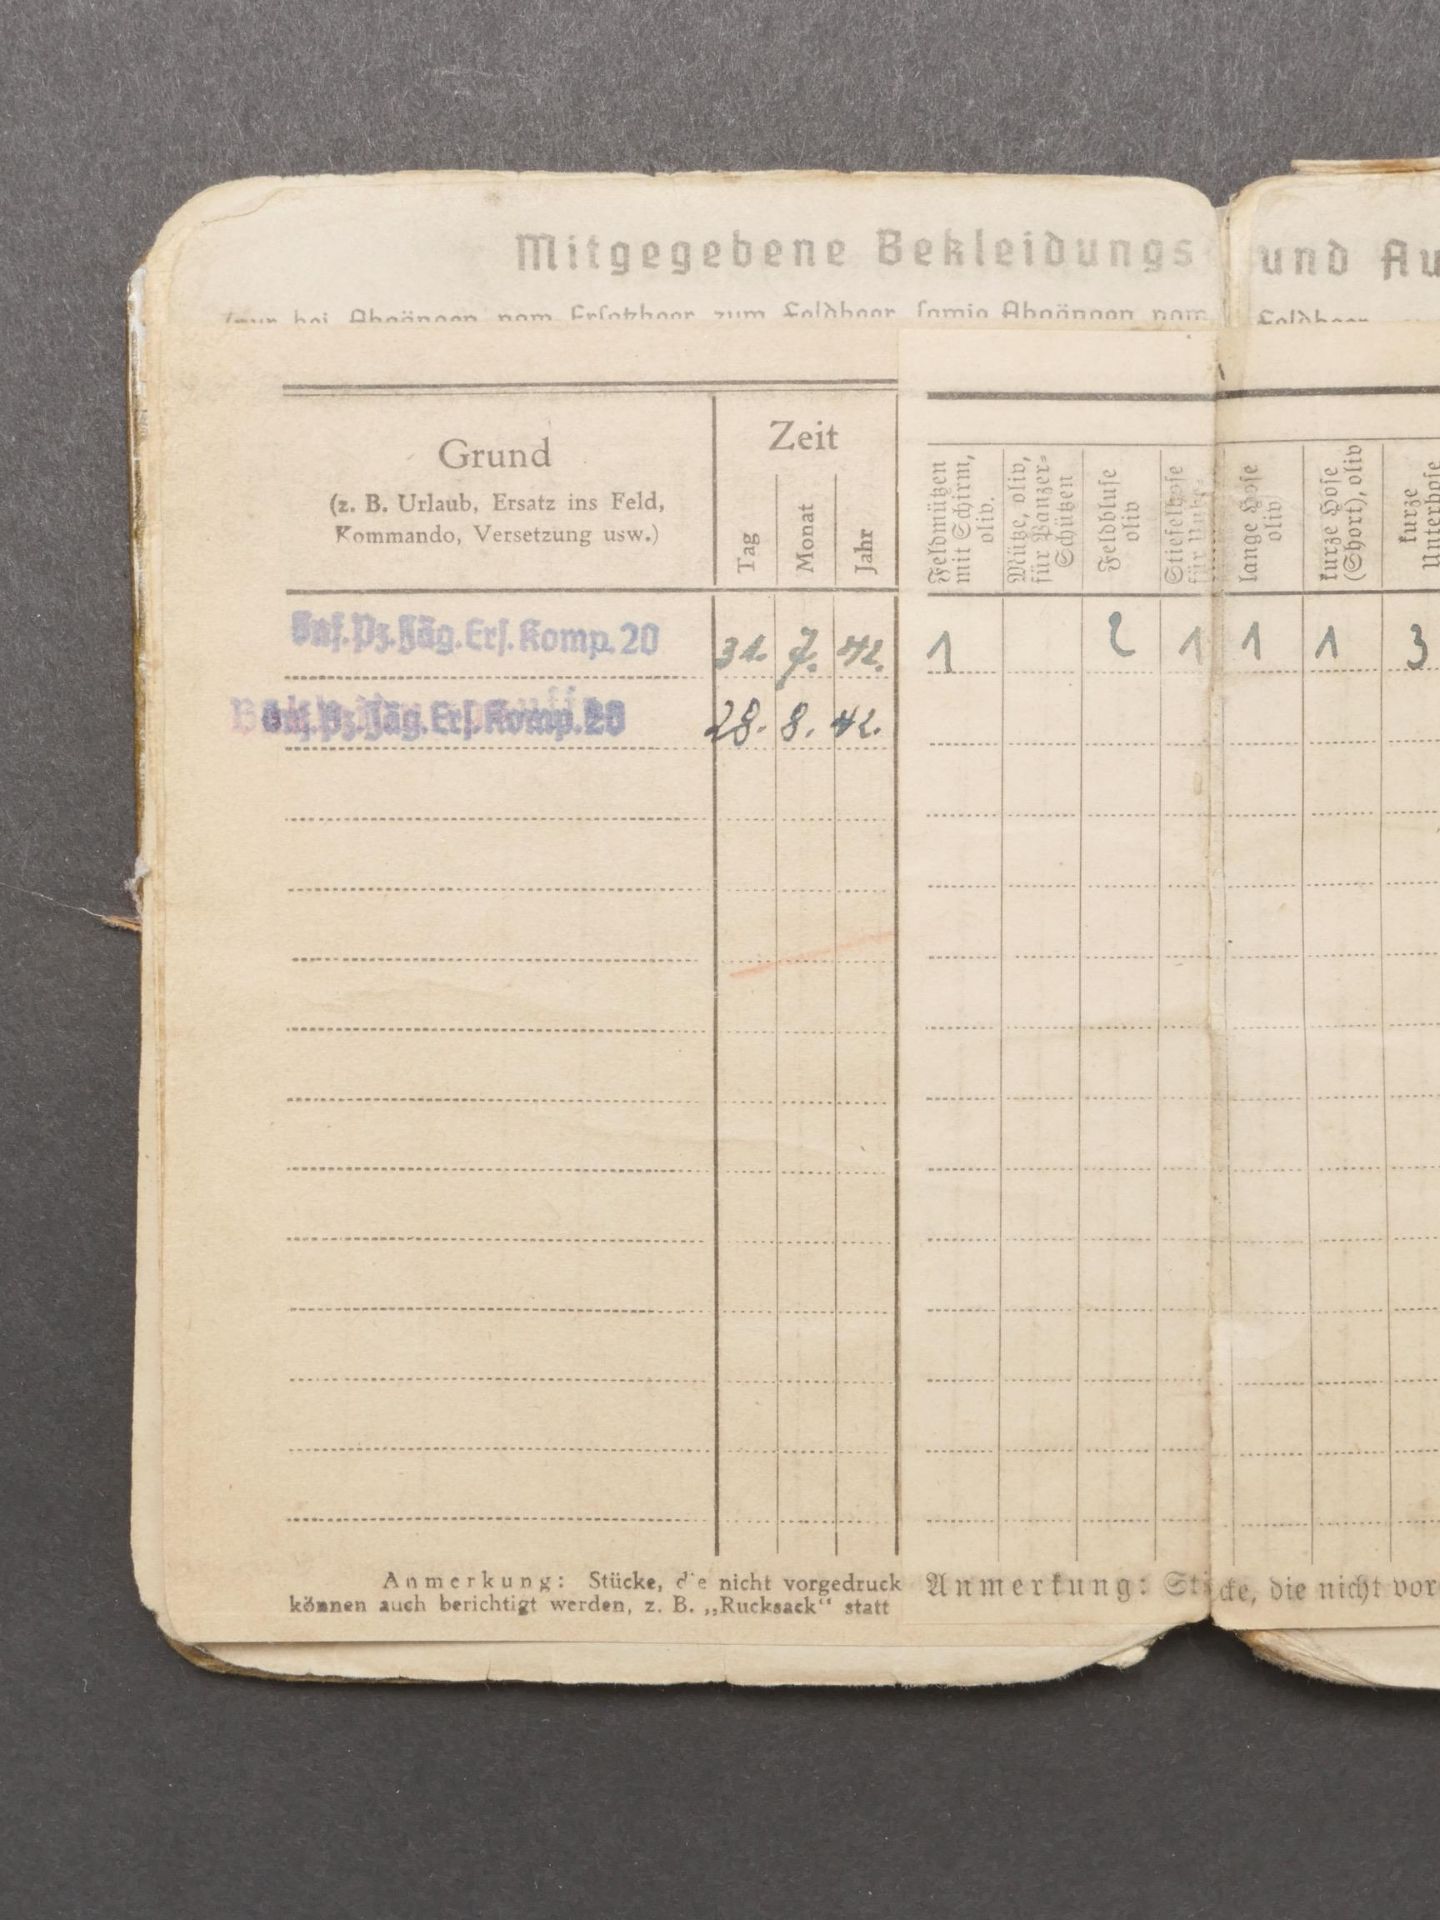 Mitgegebene Bekleidungs und Au
(nur bei Abgängen vom Ersatzheer zum Feldheer sowie Abgängen vom Feldheer
Grund
(z. B. Urlaub, Ersatz ins Feld,
Kommando, Versetzung usw.)
Zeit
Tag
Monat
Jahr
Feldmützen
mit Schirm,
oliv.
Mütze, oliv,
für Panzer-
Schützen
Feldbluse
oliv
Stiefelhose
für
lange Hose
oliv
kurze Hose
(Short), oliv
kurze
Unterhose
Inf.Pz.Jäg.Ers.Komp.20 31. 7. 42. 1 2 1 1 1 3
Inf.Pz.Jäg.Ers.Komp.20 28. 8. 42.
Anmerkung: Stücke, die nicht vorgedruck
können auch berichtigt werden, z. B. „Rucksack“ statt
Anmerkung: Stücke, die nicht vor